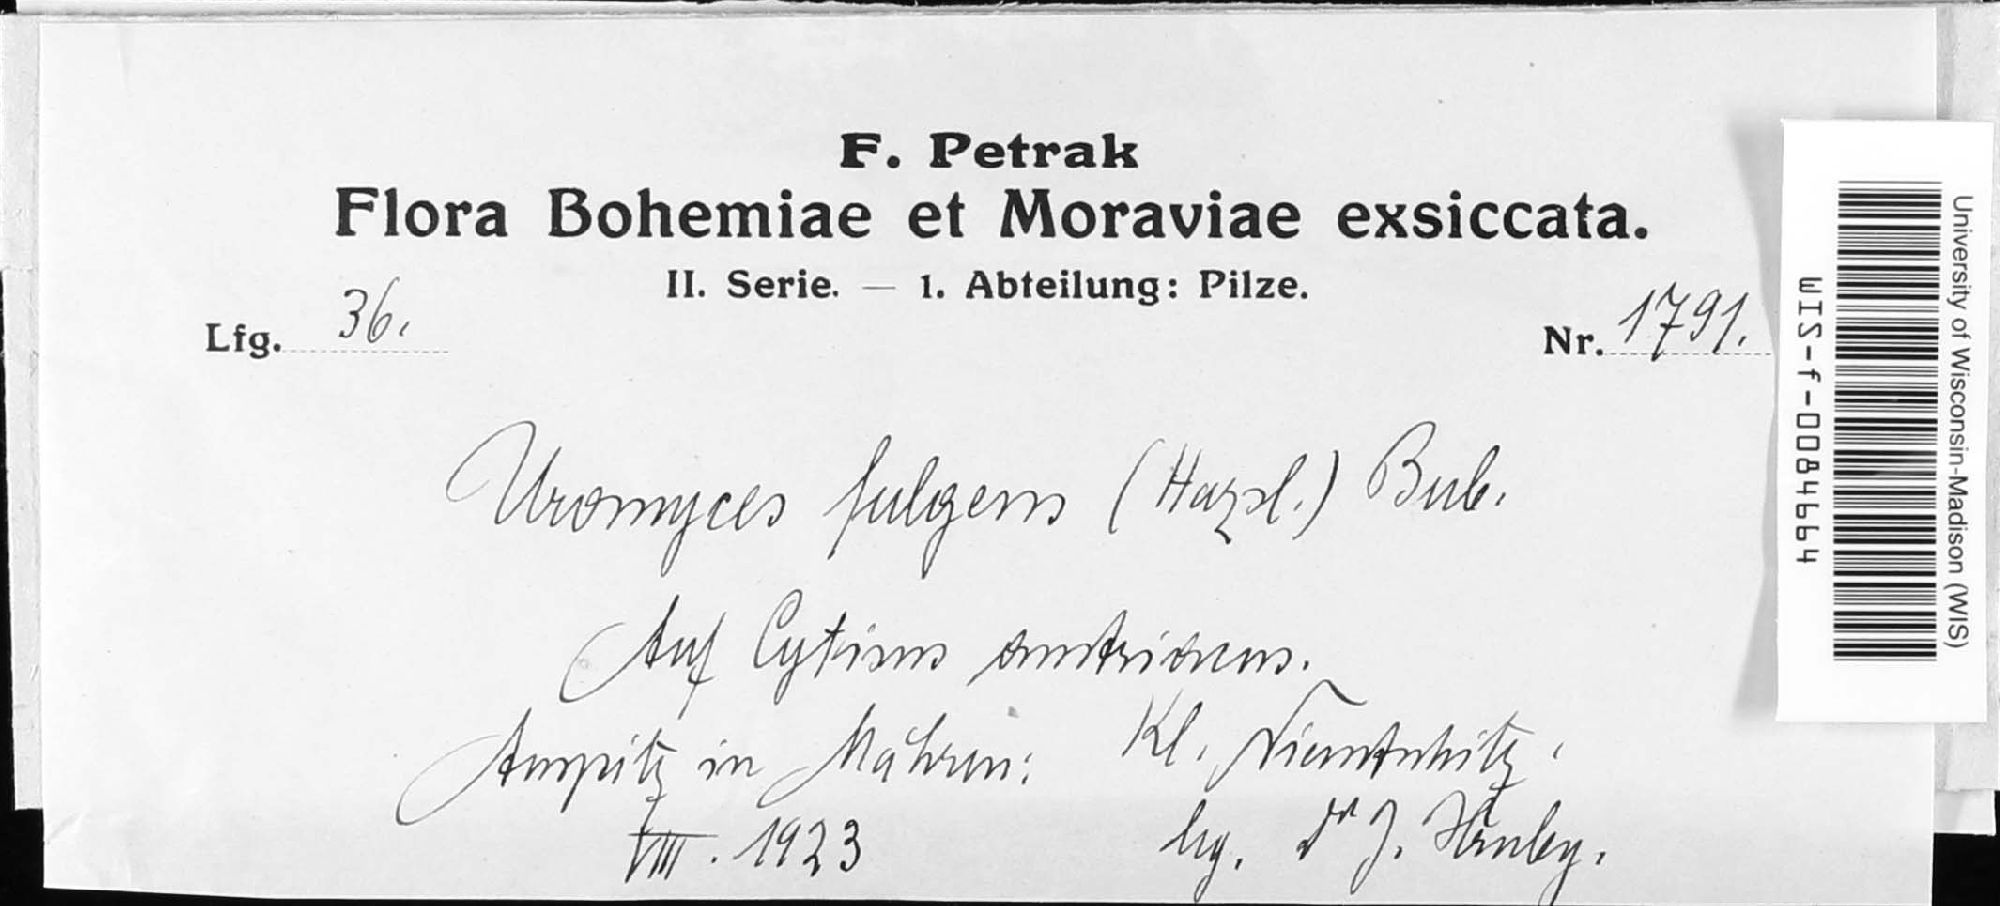 F. Petrak
Flora Bohemiae et Moraviae exsiccata.
II. Serie. — 1. Abteilung: Pilze.
Lfg. 36.
Nr. 1791.
Uromyces fulgens (Hazsl.) Bub.
Auf Cytisus austriacus.
Auspitz in Mähren: Kl. Niemtschitz.
VIII. 1923
leg. Dr J. Hruby.
University of Wisconsin-Madison (WIS)
WIS-f-0084664